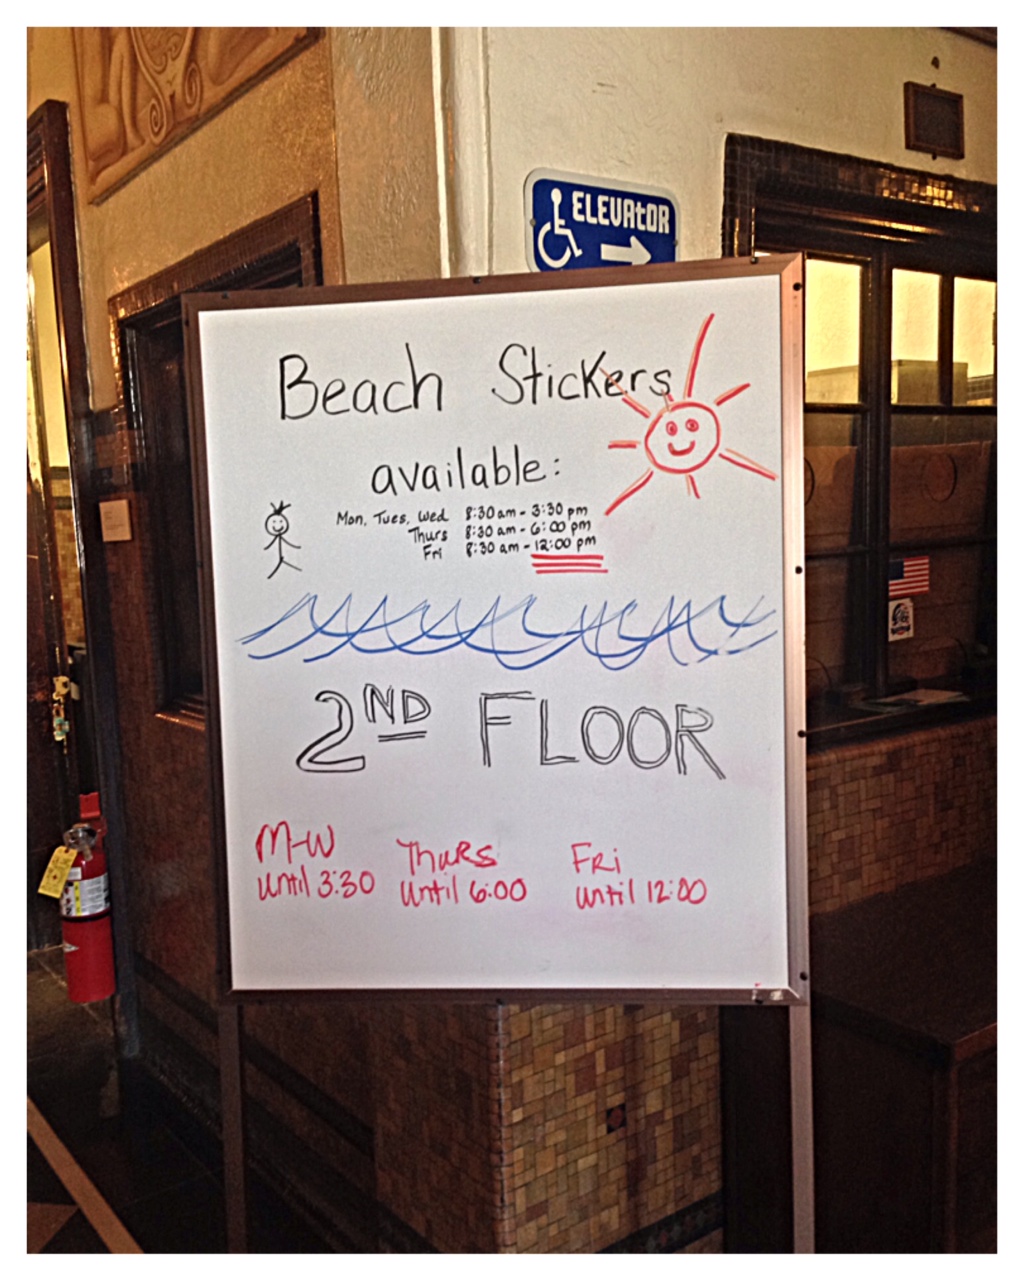 ELEVAtOR
Beach Stickers
available:
Mon, Tues, Wed 8:30 am - 3:30 pm
Thurs 8:30 am - 6:00 pm
Fri 8:30 am - 12:00 pm
2ND FLOOR
M-W
until 3:30
Thurs
until 6:00
Fri
until 12:00